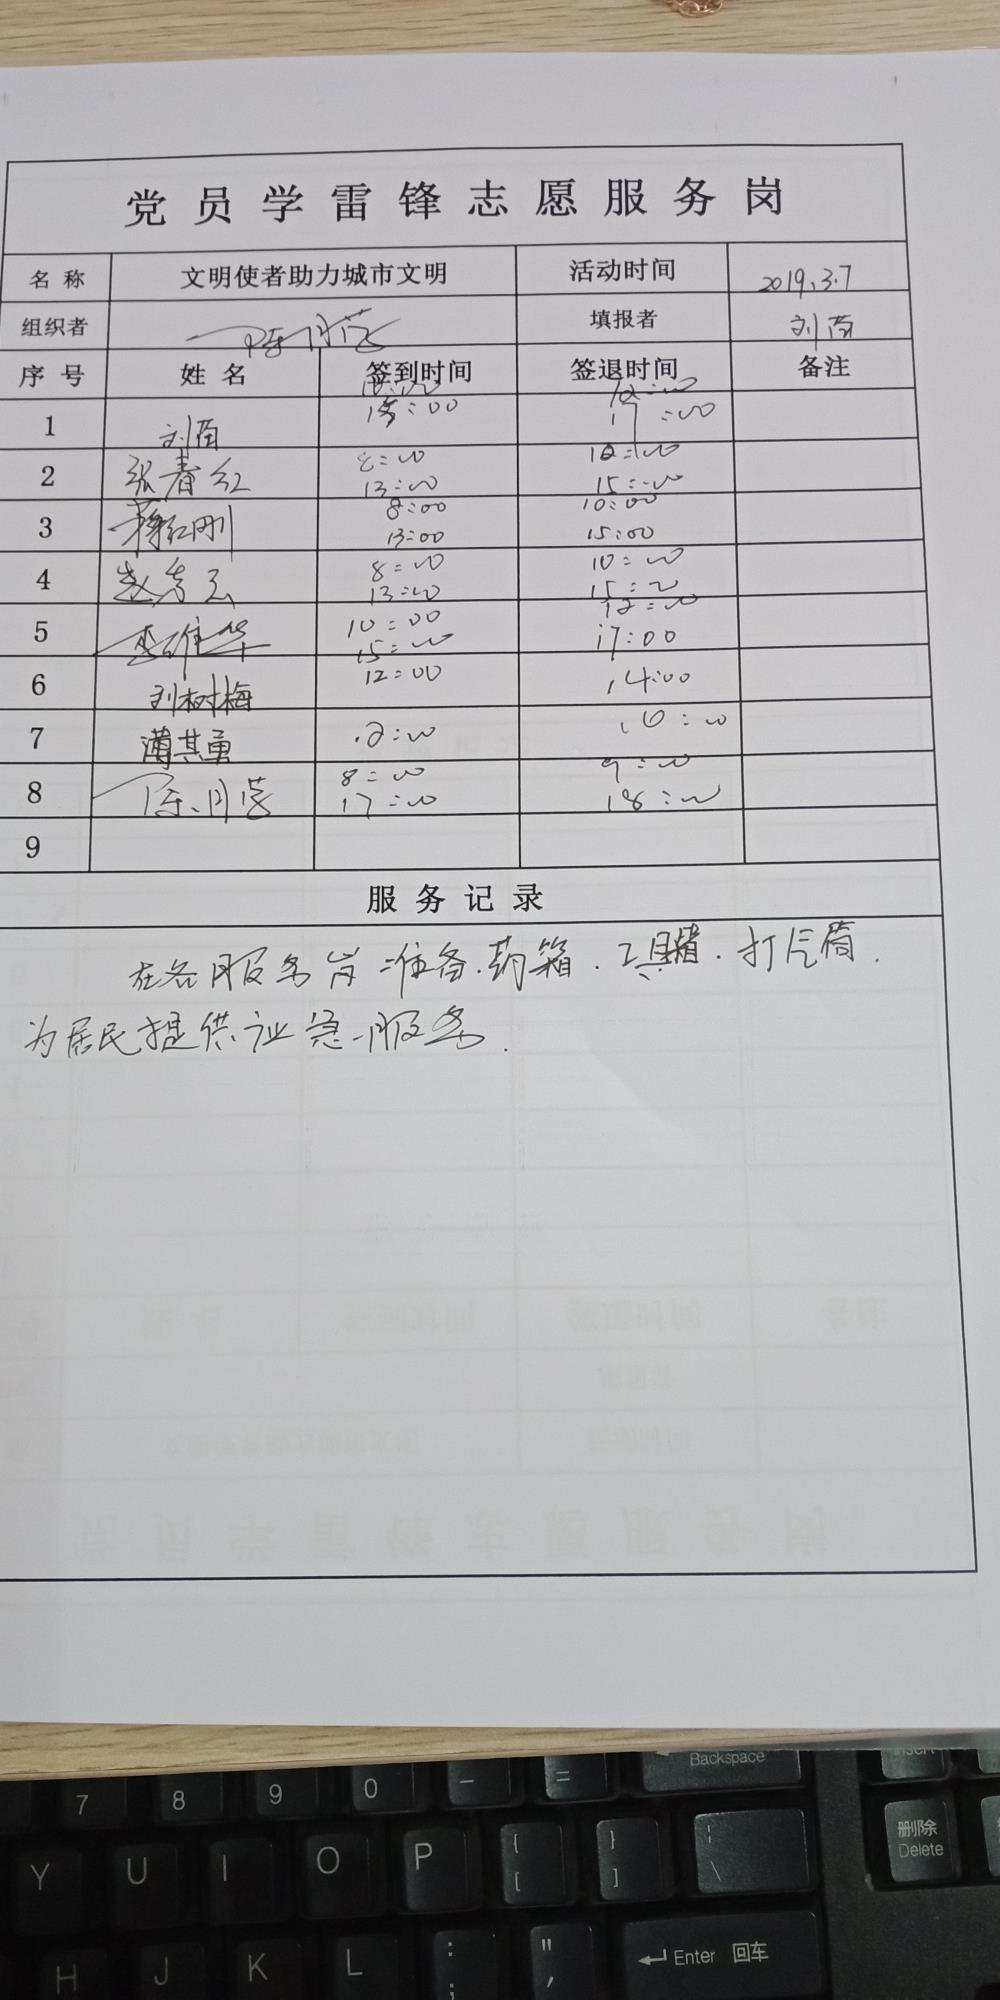 党员学雷锋志愿服务岗
名称 文明使者助力城市文明 活动时间 2019.3.7
组织者 填报者 刘苗
序号 姓名 签到时间 签退时间 备注
10:00 12:00
1 刘苗 15:00 17:00
8:00 10:00
2 张春红 13:00 15:00
8:00 10:00
3 红刚 13:00 15:00
8:00 10:00
4 赵 13:00 15:00
10:00 12:00
5 李雄华 15:00 17:00
6 刘树梅 12:00 14:00
7 蒲其勇 12:00
8:00 9:00
8 17:00 18:00
9
服务记录
在各服务岗准备.药箱.工具箱.打气筒.
为居民提供应急服务.
Backspace Insert
7 8 9 0 - =
Y U I O P { [ } ] | \ 删除 Delete
H J K L : ; " ' Enter 回车